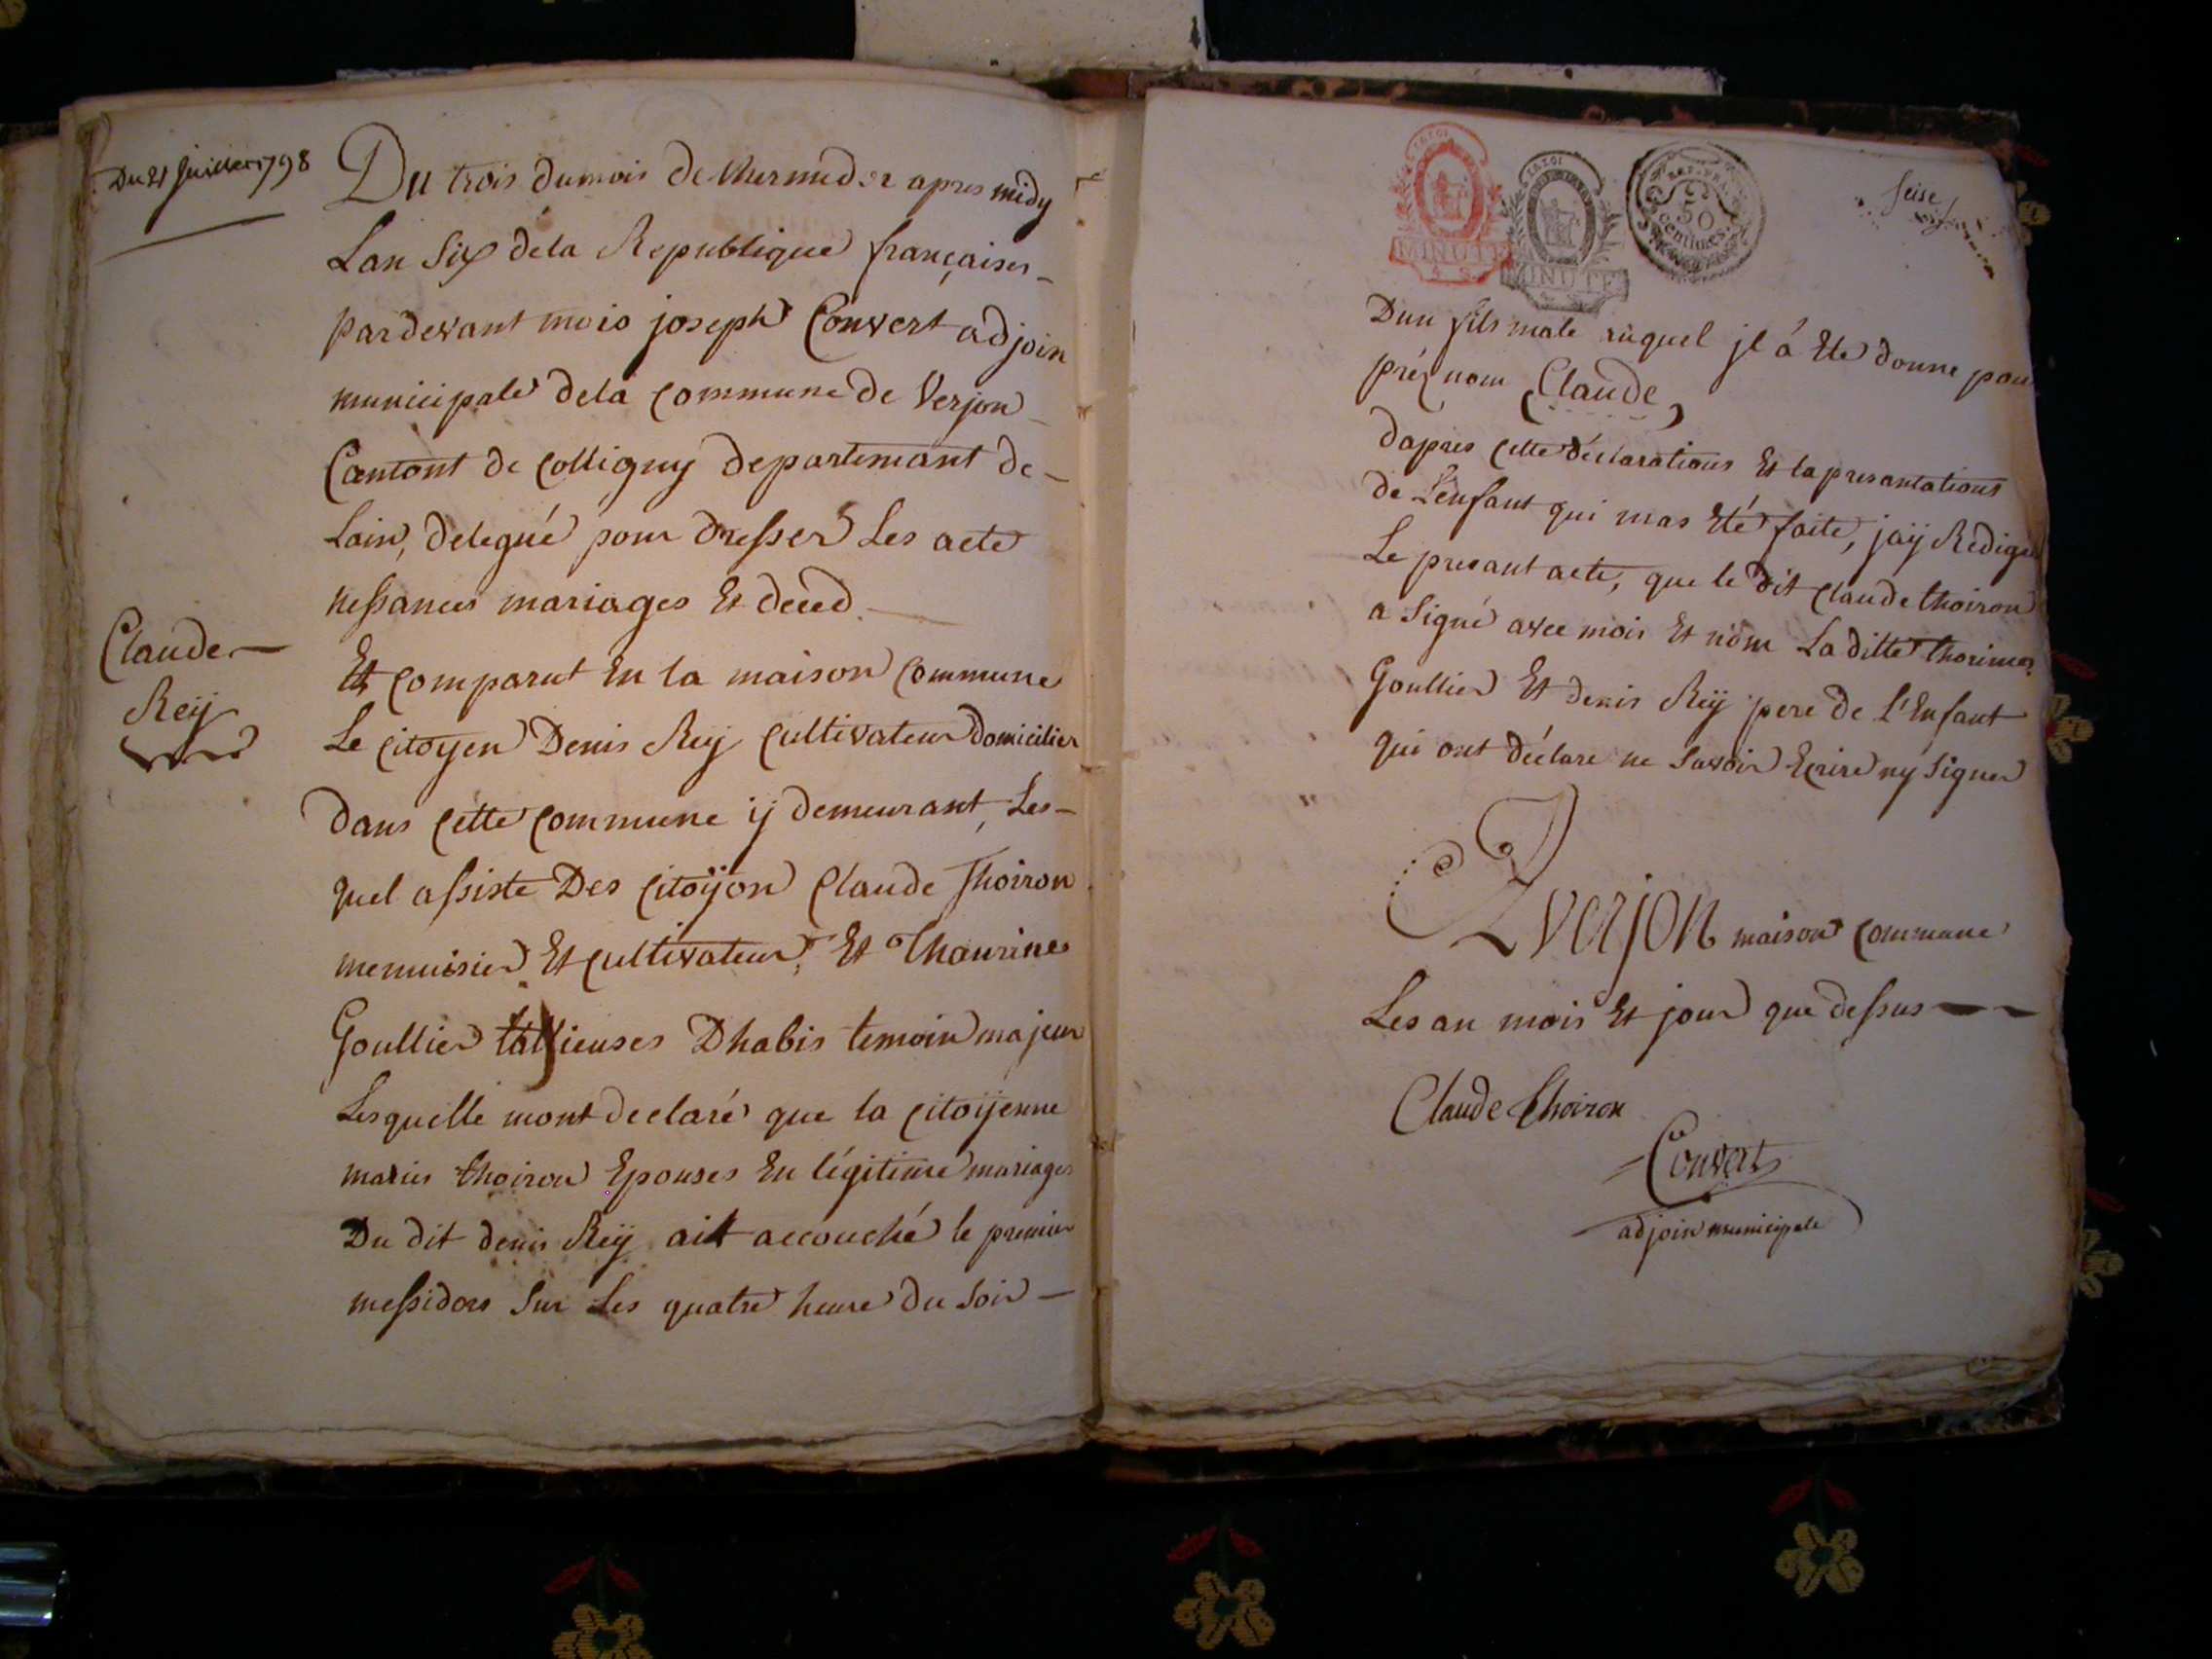 Du 21 Juillet 1798
Du trois du mois de thermidor apres midy
Lan Six dela Republique françaises
pardevant mois joseph Convert adjoin
municipale dela commune de Verjon
Cantont de Colligny departemant de
Lain, delegué pour dresser Les acte
nessances mariages Et deced
Claude
Reÿ
Et comparut En la maison Commune
Le citoyen Denis Reÿ cultivateur domicilier
dans cette commune ij demeurant, Les-
quel assiste Des citoÿon Claude Thoiron
menuisier Et cultivateur, Et Thaurine
Goullier tallieuses Dhabis temoin majeur
Lesquelle mont declaré que la citoÿenne
maries thoiron Epouses En légitime mariages
Du dit denis Reÿ ait accouché le premier
messidors Sur Les quatre heure du Soir
MINUTE
4 S.
MINUTE
REP. FRA.
50
centimes.
seise
Dun fils male auquel jl á Eté donne pour
préz nom Claude
dapres cette déclarations Et la presantations
de L'enfant qui mas Eté faite, jaÿ Rediges
Le presant acte, que le dit claude thoiron
a Signé avec mois Et nom La ditte thorines
Goullier Et denis Reÿ pere de L'Enfant
qui ont déclare ne Savoir Ecrire nÿ Signer
A verjon maison commune
Les an mois Et jour que dessus
Claude thoiron
Convert
adjoin municipale